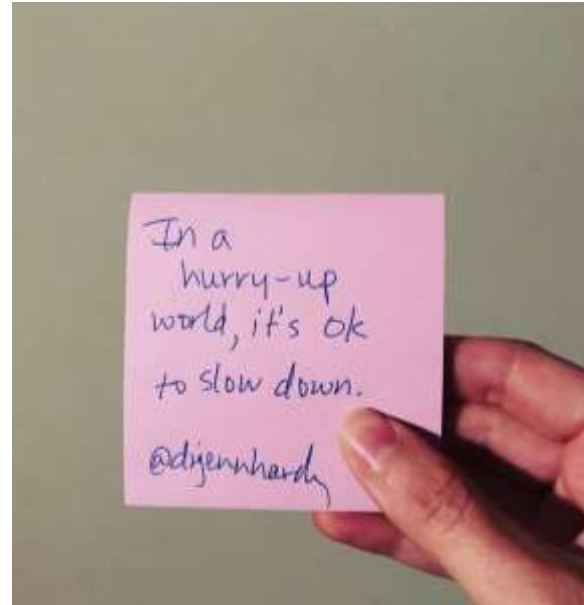 In a
hurry-up
world, it's ok
to slow down.
@drjennhardy